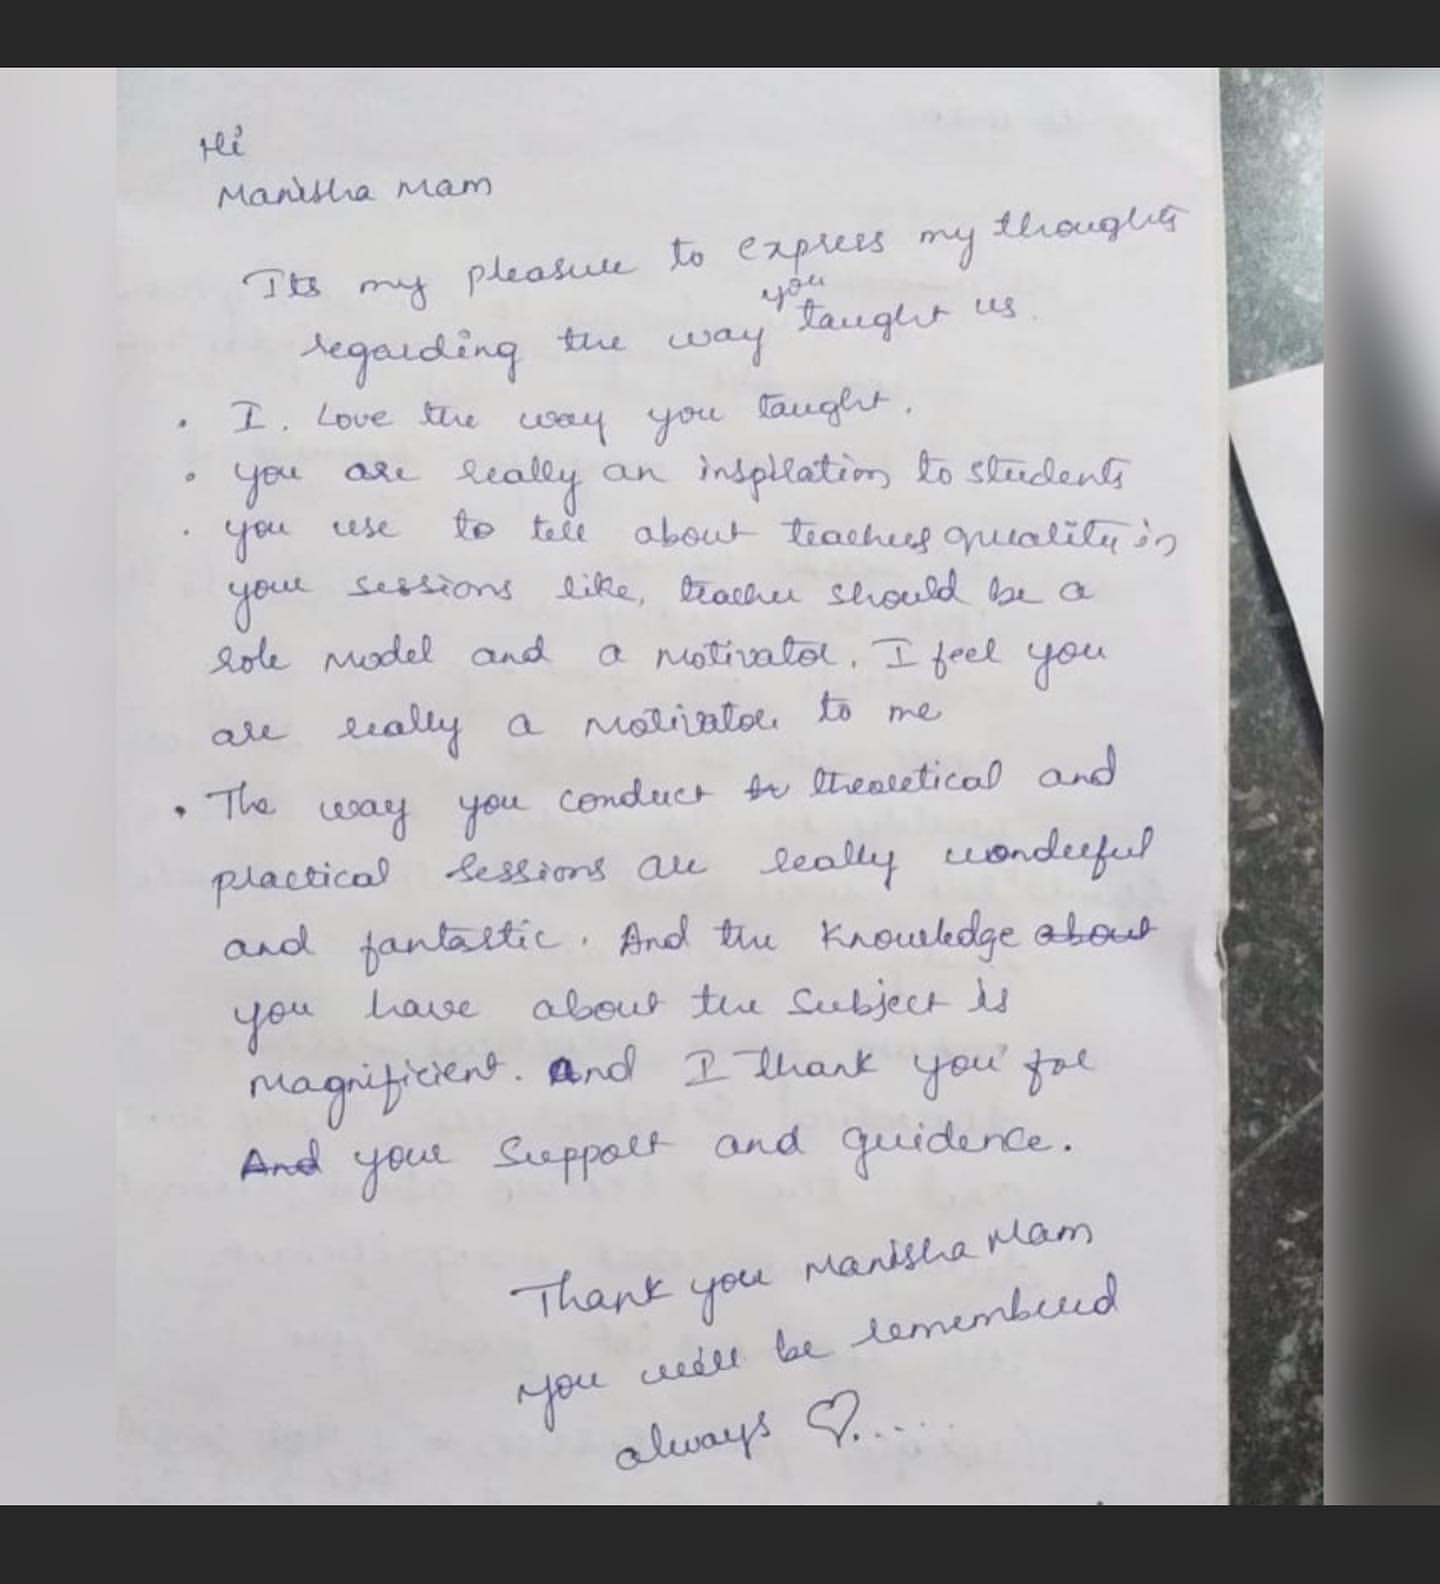 Hi
Manisha Mam
Its my pleasure to express my thoughts
regarding the way you taught us.
• I. Love the way you taught.
• you are really an inspiration to students
• you use to tell about teachers quality in
your sessions like, teacher should be a
role model and a motivator. I feel you
are really a motivator to me
• The way you conduct theoretical and
practical sessions are really wonderful
and fantastic. And the knowledge about
you have about the subject is
magnificient. And I thank you for
And your support and guidence.
Thank you Manisha Mam
you will be remembered
always ♡....